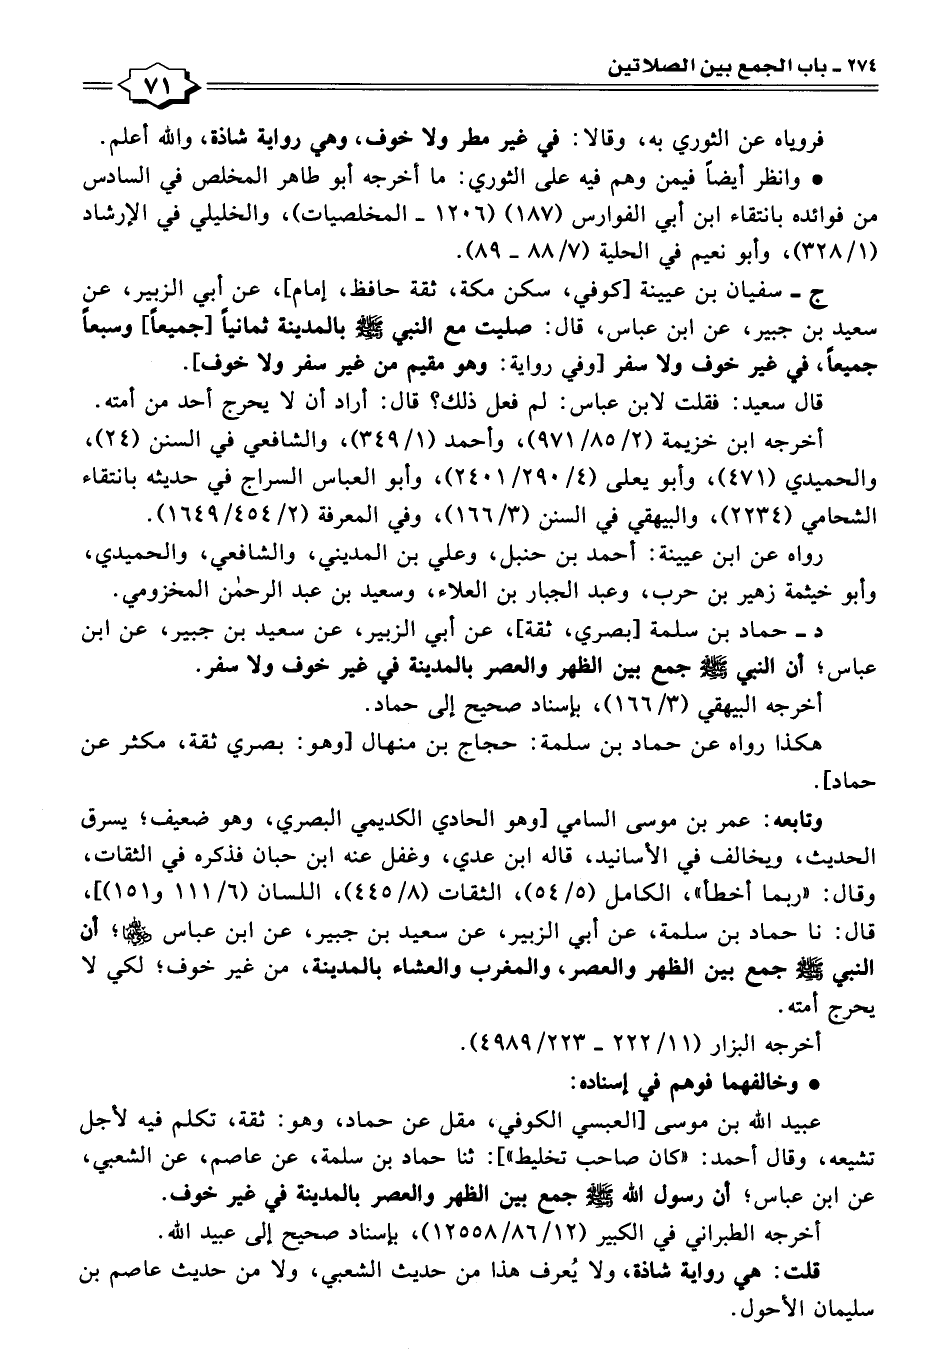 ٢٧٤ - باب الجمع بين الصلاتين
٧١
فروياه عن الثوري به، وقالا: في غير مطر ولا خوف، وهي رواية شاذة، والله أعلم.
• وانظر أيضاً فيمن وهم فيه على الثوري: ما أخرجه أبو طاهر المخلص في السادس
من فوائده بانتقاء ابن أبي الفوارس (١٨٧) (١٢٠٦ - المخلصيات)، والخليلي في الإرشاد
(٣٢٨/١)، وأبو نعيم في الحلية (٨٨/٧ - ٨٩).
ج - سفيان بن عيينة [كوفي، سكن مكة، ثقة حافظ، إمام]، عن أبي الزبير، عن
سعيد بن جبير، عن ابن عباس، قال: صليت مع النبي ﷺ بالمدينة ثمانياً [جميعاً] وسبعاً
جميعاً، في غير خوف ولا سفر [وفي رواية: وهو مقيم من غير سفر ولا خوف].
قال سعيد: فقلت لابن عباس: لم فعل ذلك؟ قال: أراد أن لا يحرج أحد من أمته.
أخرجه ابن خزيمة (٩٧١/٨٥/٢)، وأحمد (٣٤٩/١)، والشافعي في السنن (٢٤)،
والحميدي (٤٧١)، وأبو يعلى (٢٤٠١/٢٩٠/٤)، وأبو العباس السراج في حديثه بانتقاء
الشحامي (٢٢٣٤)، والبيهقي في السنن (١٦٦/٣)، وفي المعرفة (١٦٤٩/٤٥٤/٢).
رواه عن ابن عيينة: أحمد بن حنبل، وعلي بن المديني، والشافعي، والحميدي،
وأبو خيثمة زهير بن حرب، وعبد الجبار بن العلاء، وسعيد بن عبد الرحمٰن المخزومي.
د - حماد بن سلمة [بصري، ثقة]، عن أبي الزبير، عن سعيد بن جبير، عن ابن
عباس؛ أن النبي ﷺ جمع بين الظهر والعصر بالمدينة في غير خوف ولا سفر.
أخرجه البيهقي (١٦٦/٣)، بإسناد صحيح إلى حماد.
هكذا رواه عن حماد بن سلمة: حجاج بن منهال [وهو: بصري ثقة، مكثر عن
حماد].
وتابعه: عمر بن موسى السامي [وهو الحادي الكديمي البصري، وهو ضعيف؛ يسرق
الحديث، ويخالف في الأسانيد، قاله ابن عدي، وغفل عنه ابن حبان فذكره في الثقات،
وقال: «ربما أخطأ»، الكامل (٥٤/٥)، الثقات (٤٤٥/٨)، اللسان (١١١/٦ و١٥١)]،
قال: نا حماد بن سلمة، عن أبي الزبير، عن سعيد بن جبير، عن ابن عباس ﵁؛ أن
النبي ﷺ جمع بين الظهر والعصر، والمغرب والعشاء بالمدينة، من غير خوف؛ لكي لا
يحرج أمته.
أخرجه البزار (٤٩٨٩/٢٢٣ - ٢٢٢/١١).
• وخالفهما فوهم في إسناده:
عبيد الله بن موسى [العبسي الكوفي، مقل عن حماد، وهو: ثقة، تكلم فيه لأجل
تشيعه، وقال أحمد: «كان صاحب تخليط»]: ثنا حماد بن سلمة، عن عاصم، عن الشعبي،
عن ابن عباس؛ أن رسول الله ﷺ جمع بين الظهر والعصر بالمدينة في غير خوف.
أخرجه الطبراني في الكبير (١٢٥٥٨/٨٦/١٢)، بإسناد صحيح إلى عبيد الله.
قلت: هي رواية شاذة، ولا يُعرف هذا من حديث الشعبي، ولا من حديث عاصم بن
سليمان الأحول.